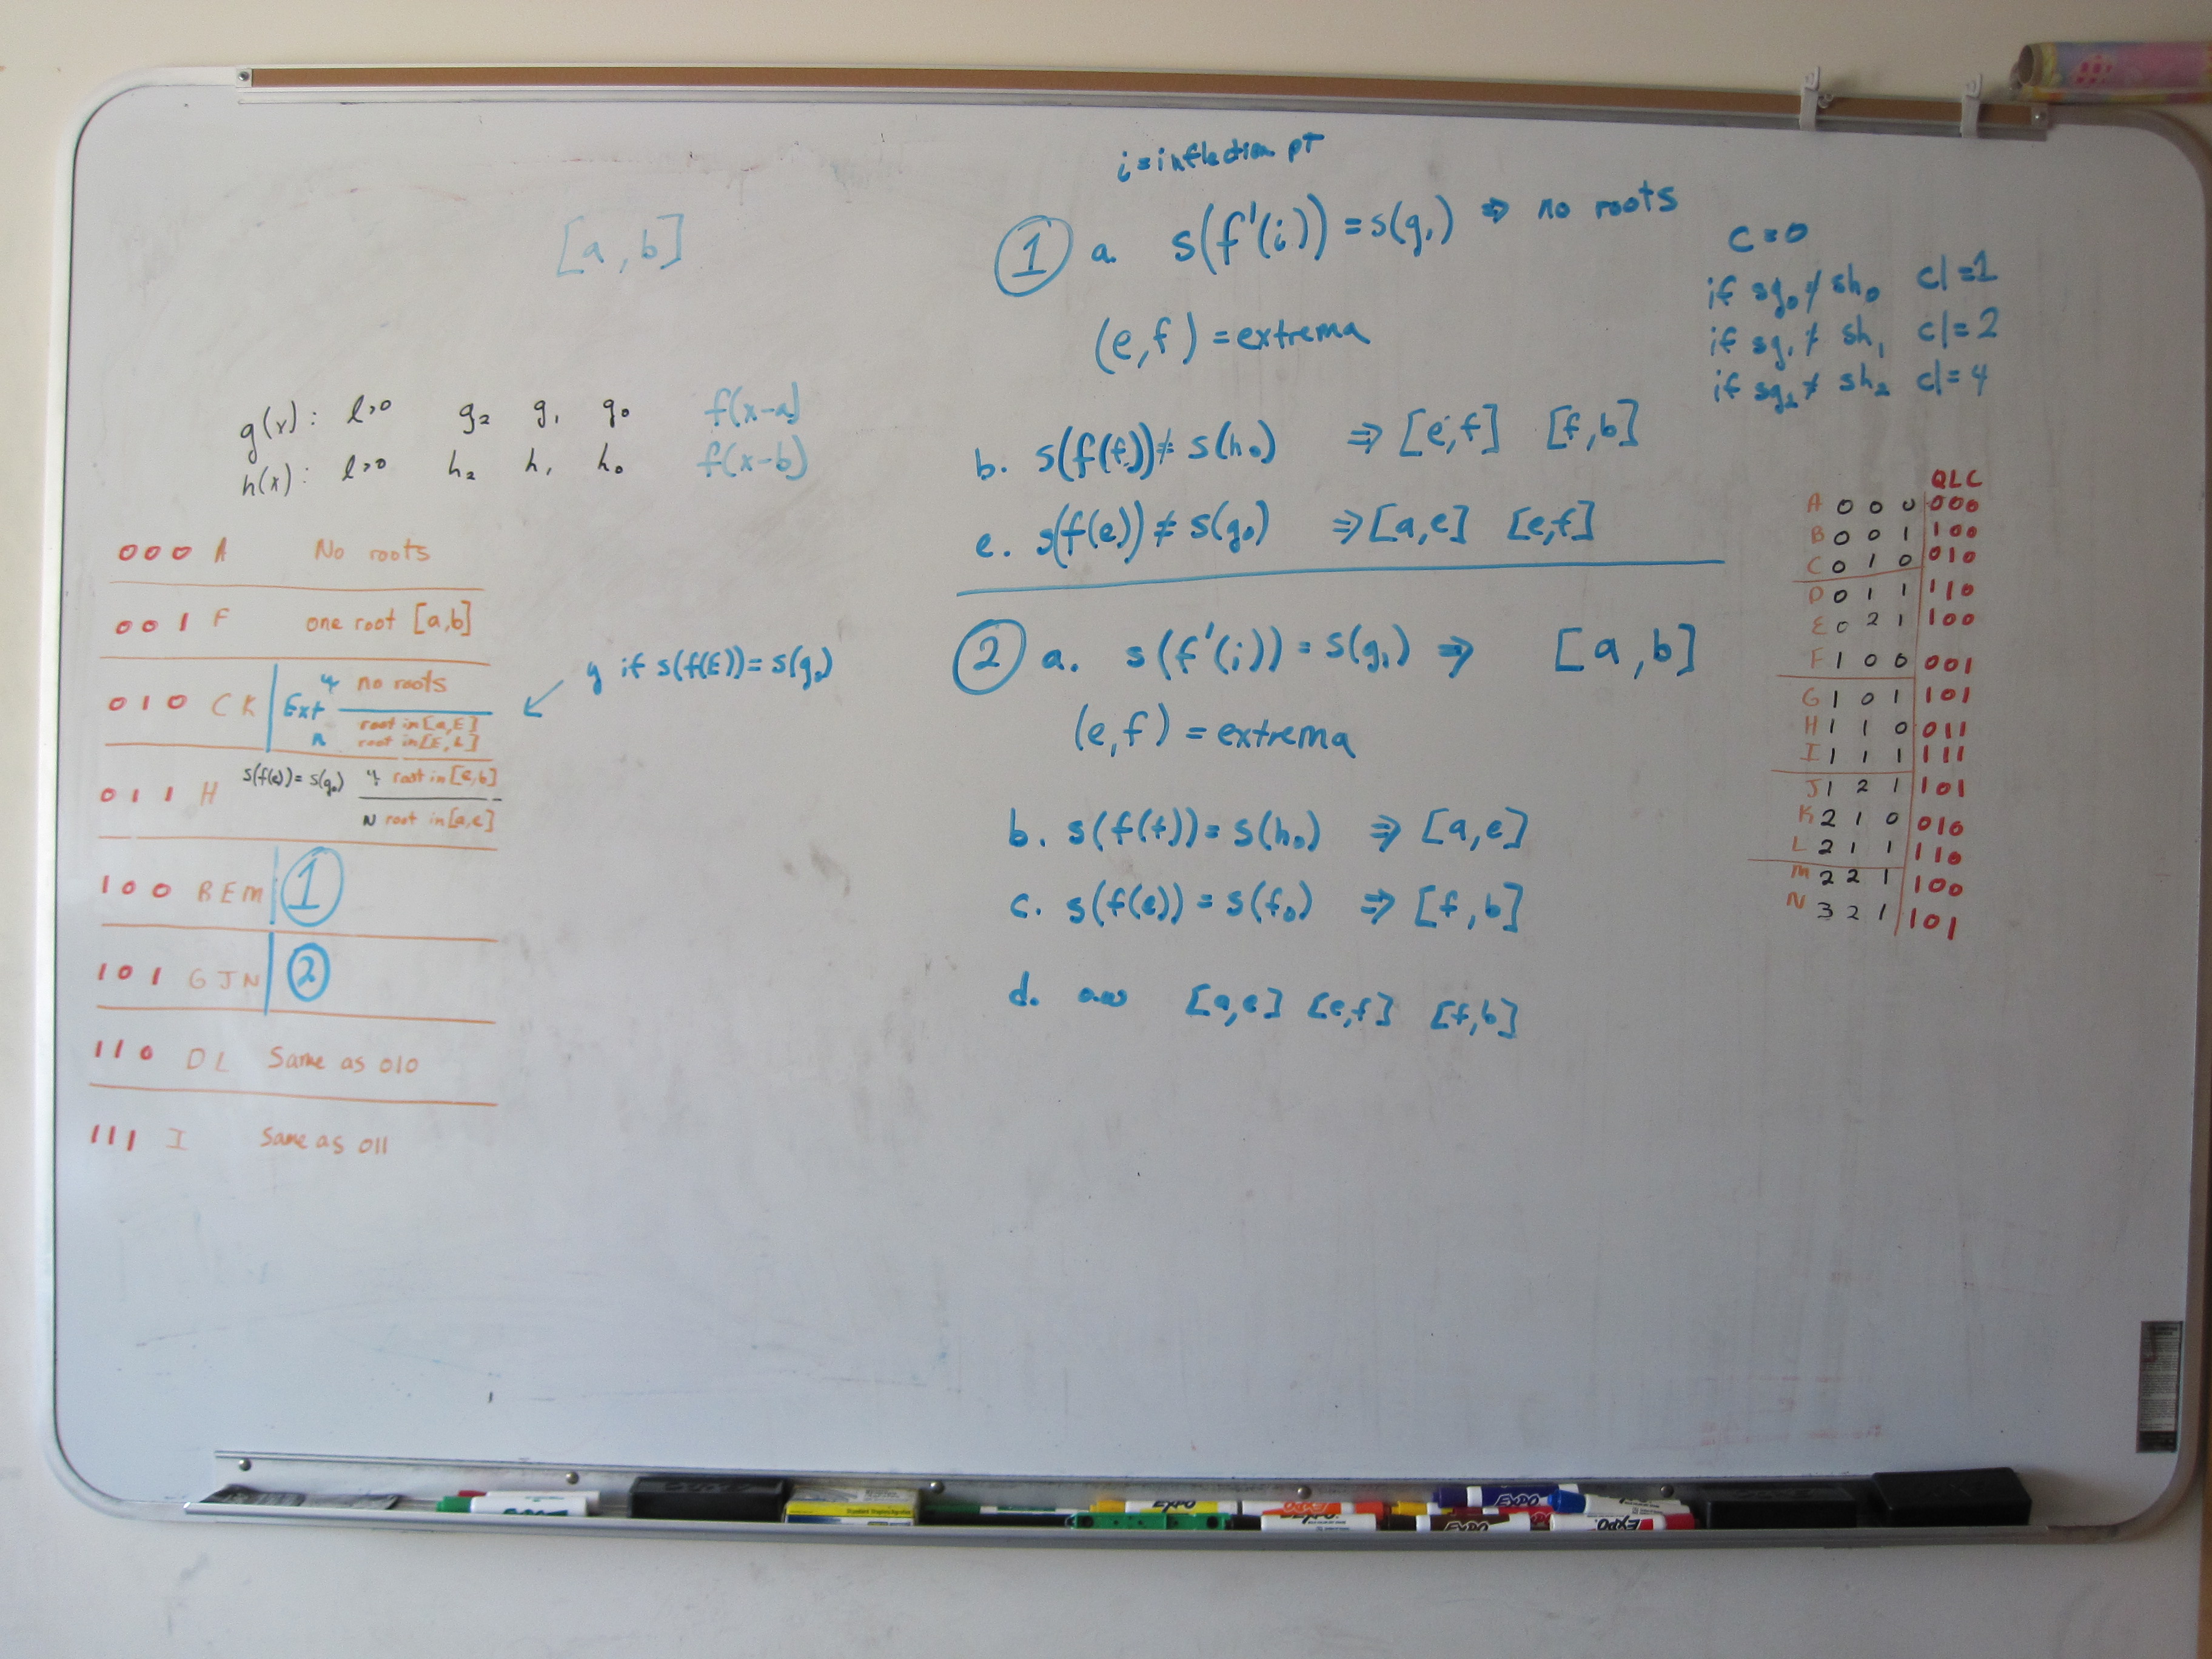 [a,b]
g(x): l>0 g₂ g₁ g₀ f(x-a)
h(x): l>0 h₂ h₁ h₀ f(x-b)
000 A No roots
001 F one root [a,b]
010 CK Ext y no roots
n root in [a,E]
root in [E,b]
y if s(f(E))=s(g₀)
011 H s(f(e))=s(g₀) y root in [e,b]
N root in [a,e]
100 BEM ①
101 GJN ②
110 DL Same as 010
111 I Same as 011
i=inflection pt
① a. s(f'(i))=s(g₁) ⇒ no roots
(e,f)=extrema
b. s(f(f))≠s(h₀) ⇒ [e,f] [f,b]
e. s(f(e))≠s(g₀) ⇒ [a,e] [e,f]
② a. s(f'(i))=s(g₁) ⇒ [a,b]
(e,f)=extrema
b. s(f(f))=s(h₀) ⇒ [a,e]
c. s(f(e))=s(f₀) ⇒ [f,b]
d. o.w [a,e] [e,f] [f,b]
c=0
if sg₀≠sh₀ c|=1
if sg₁≠sh₁ c|=2
if sg₂≠sh₂ c|=4
QLC
A 0 0 0 000
B 0 0 1 100
C 0 1 0 010
D 0 1 1 110
E 0 2 1 100
F 1 0 0 001
G 1 0 1 101
H 1 1 0 011
I 1 1 1 111
J 1 2 1 101
K 2 1 0 010
L 2 1 1 110
M 2 2 1 100
N 3 2 1 101
EXPO
EXPO
EXPO
EXPO